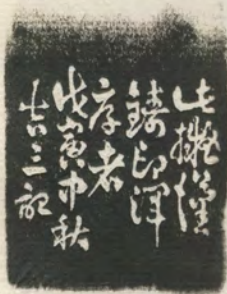 此擬漢
鑄印渾
厚者
戊寅中秋
吉三記